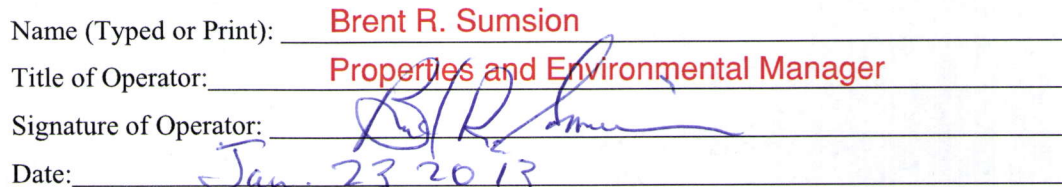 Name (Typed or Print): Brent R. Sumsion
Title of Operator: Properties and Environmental Manager
Signature of Operator: Brent R. Sumsion
Date: Jan. 23 2013